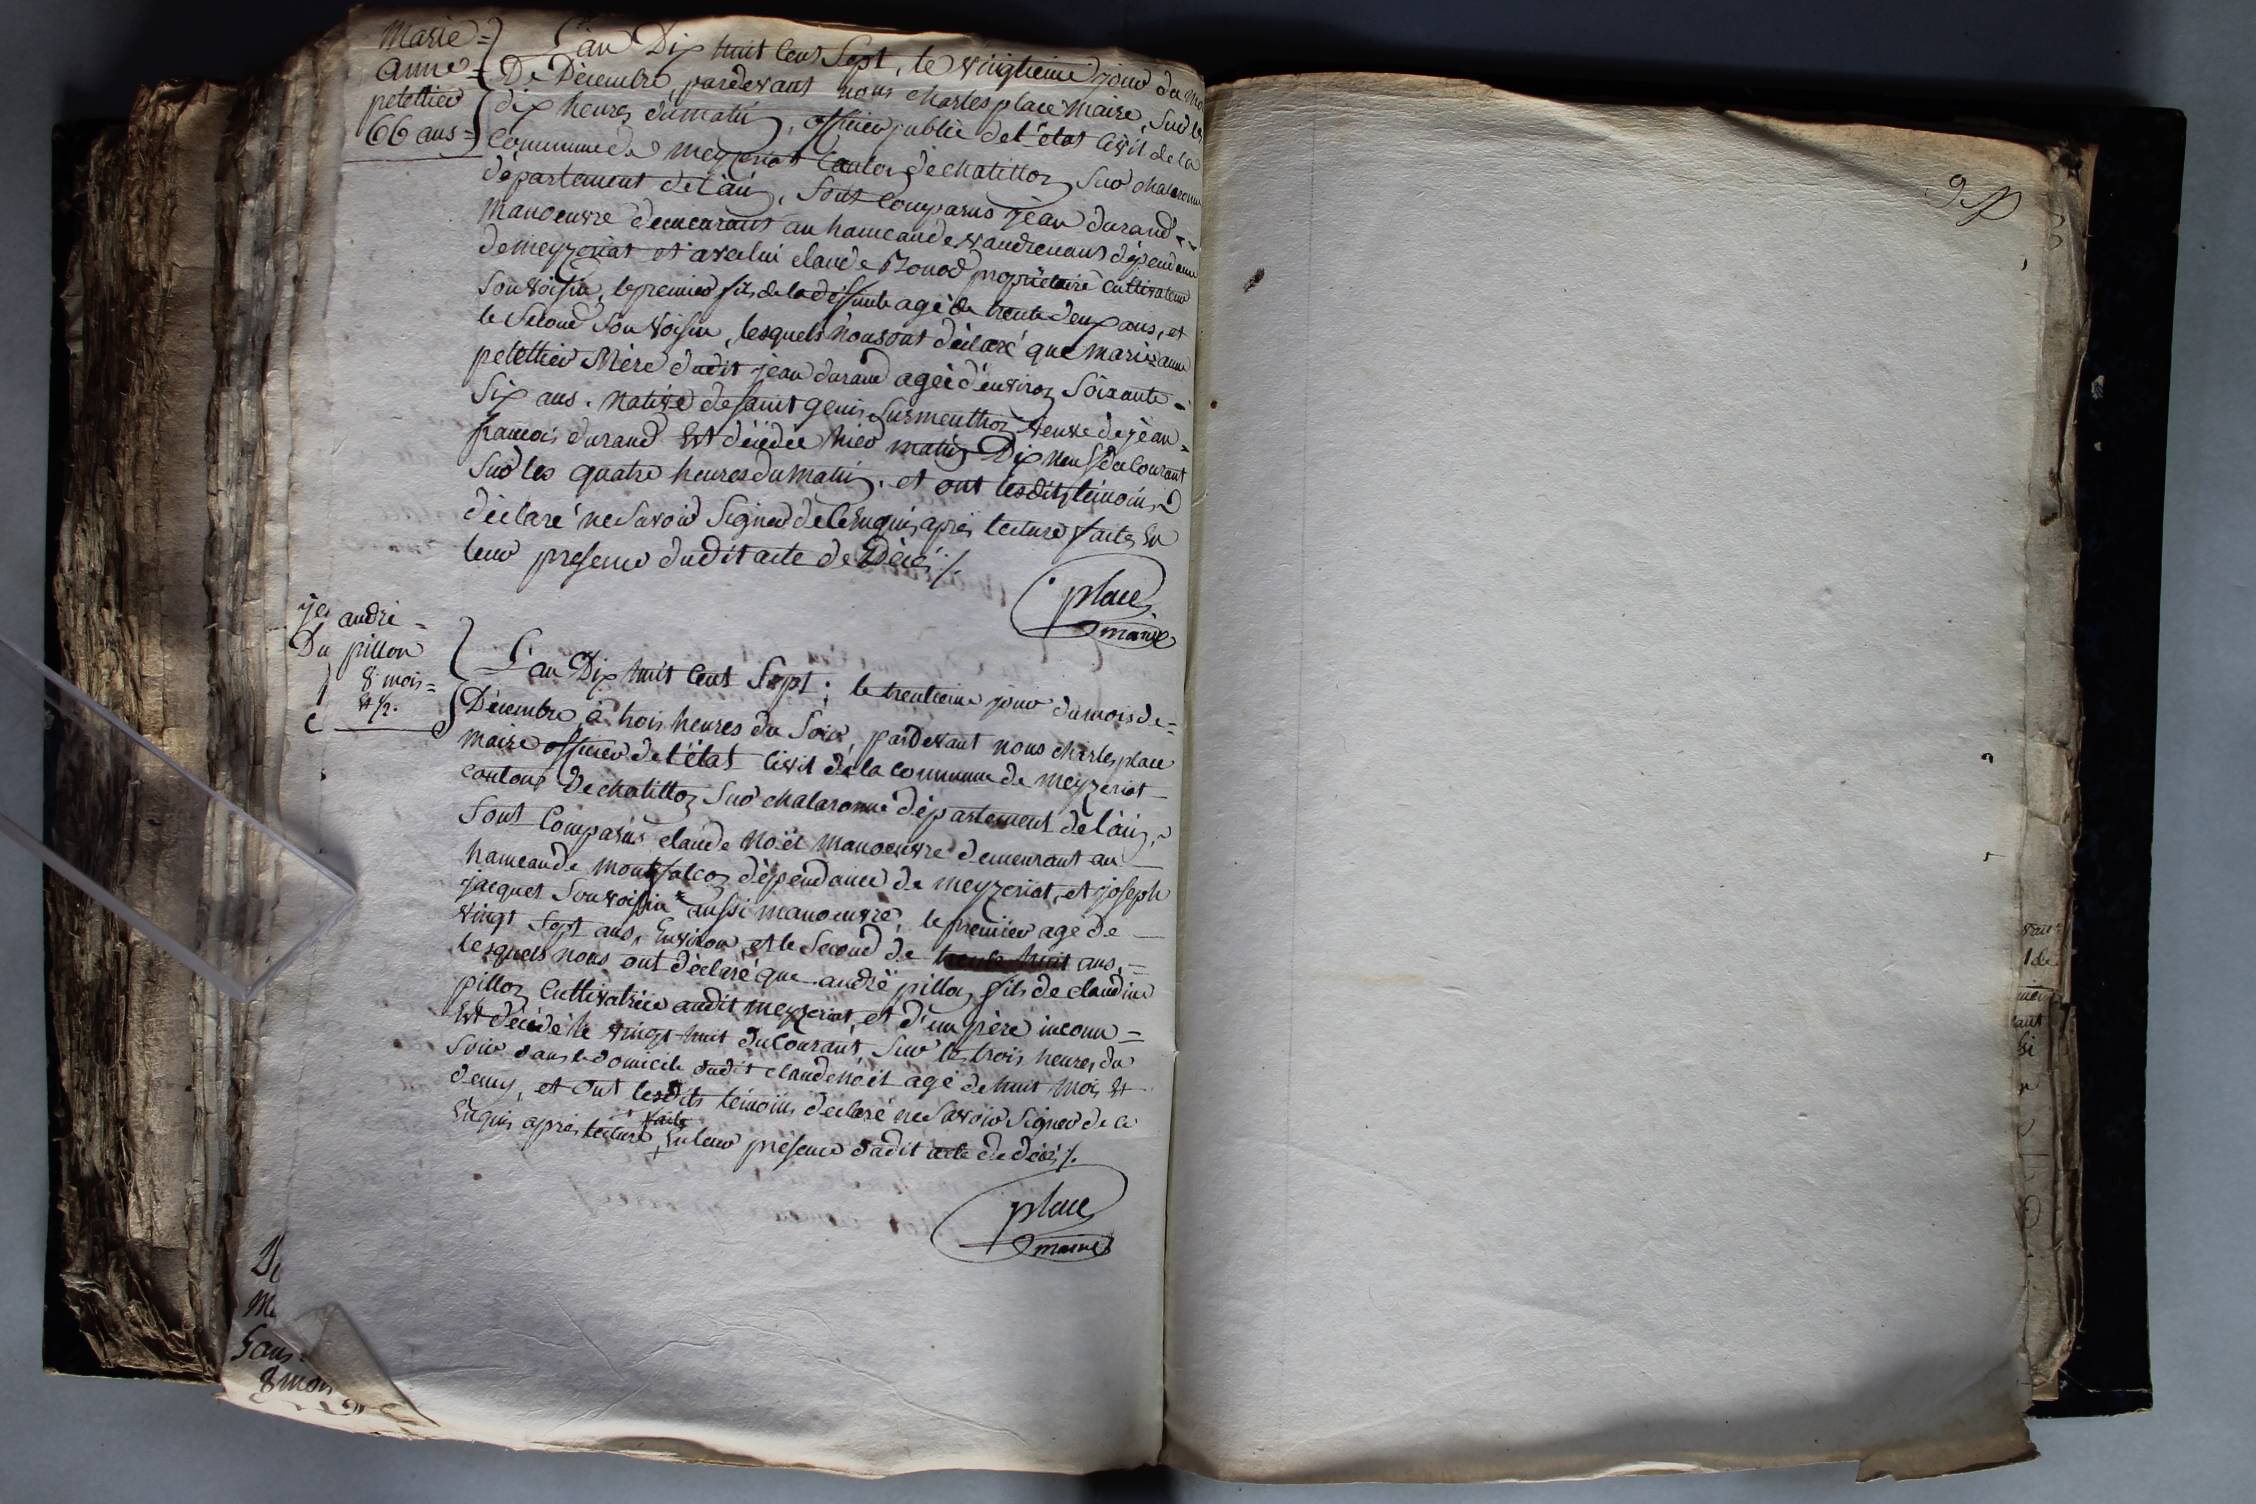 Marie =
anne =
pelettier
66 ans =
L'an Dix huit Cent Sept, le vingtieme jour du mo
De Décembre, pardevant nous charles place Maire, Sur les
dix heures du matin, officier public de l'état Civil de la
Commune de meyzeriat Canton de chatillon Sur chalaronne
département de l'ain, Sont Comparus jean durand
Manoeuvre demeurant au hameau de vaudrenant dépendance
de meyzeriat et avec lui claude Monod propriétaire Cultivateur
Son voisin, le premier fils de la deffunte agé de trente deux ans, et
le Second Son voisin, lesquels nous ont déclaré que marie anne
pelettier Mère dudit jean durand agée d'environ Soixante =
Six ans. native de saint genis Sur menthon veuve de jean =
francois durand Est décédée hier matin Dix neuf du Courant
Sur les quatre heures du matin. et ont lesdits témoins
déclaré ne Savoir Signer de ce Enquis, après lecture faite, En
leur presence dudit acte de Décès ./.
place
maire
andré =
Du pillon
8 mois =
et ½.
L'an Dix huit Cent Sept ; le trentieme jour du mois de =
Décembre, à trois heures du Soir, pardevant nous charles place
maire officier de l'état Civil de la commune de meyzeriat
canton De chatillon Sur chalaronne département de l'ain,
Sont Comparus claude noël manoeuvre demeurant au
hameau de montfalcon dépendance de meyzeriat, et joseph
jacquet Son voisin aussi manoeuvre, le premier agé de
vingt Sept ans, Environ, et le Second de trente huit ans, =
lesquels nous ont déclaré que andré pillon fils de claudine
pillon Cultivatrice audit meyzeriat, et d'un père inconnu =
Est décédé le vingt huit du Courant, Sur les trois heures du
Soir dans le domicile dudit claude noël agé de huit mois et
demy, et ont lesdits témoins déclaré ne Savoir Signer de ce
Enquis après lecture faite En leur présence dudit acte de décès ./.
place
maire
5 ans
8 mois
96